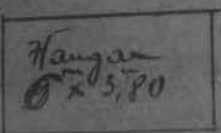 Hangar
6 x 3,80